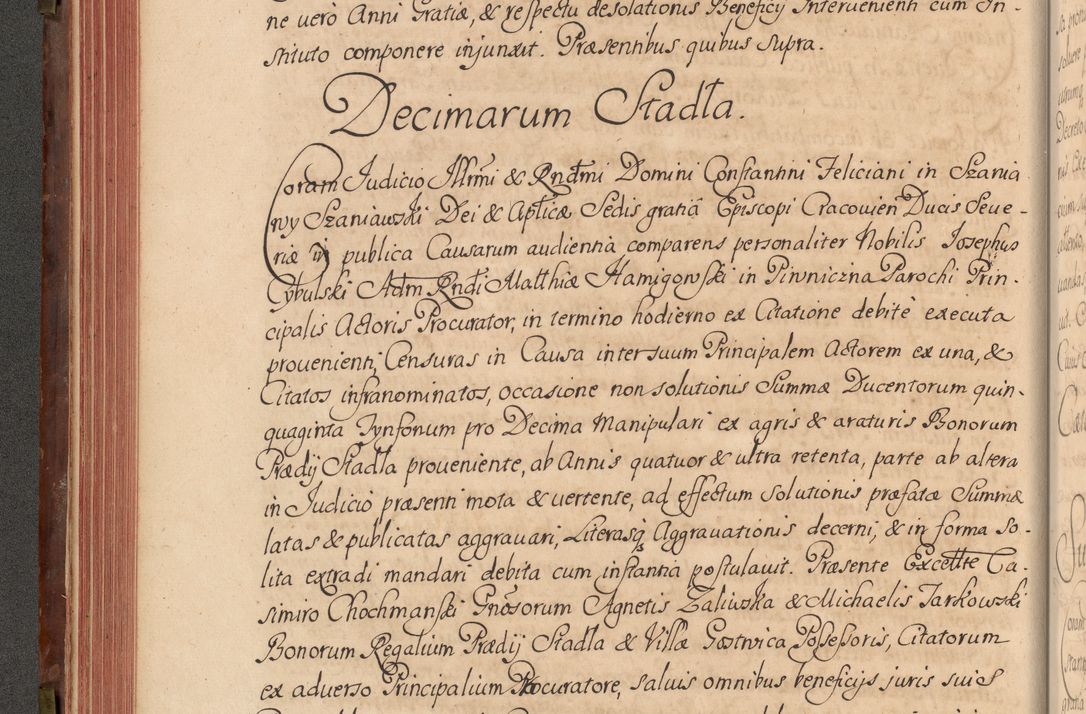 ne vero Anni Gratiæ, & respectu desolationis Beneficij Intervenienti cum In-
stituto componere injunxit. Præsentibus quibus supra.
Decimarum Stadła.
Coram Judicio Illrmi & Rndmi Domini Constantini Feliciani in Szania
wy Szaniawski Dei & Aplicæ Sedis gratiâ Episcopi Cracovien Ducis Seve-
riæ in publica Causarum audientia comparens personaliter Nobilis Josephus
Cybulski Adm Rndi Matthiæ Hamigowski in Piwniczna Parochi Prin-
cipalis Actoris Procurator, in termino hodierno ex Citatione debitè executa
provenienti, Censuras in Causa inter suum Principalem Actorem ex una, &
Citatos infranominatos, occasione non solutionis Summæ Ducentorum quin-
quaginta Tynfonum pro Decima Manipulari ex agris & araturis Bonorum
Prædij Stadla proveniente, ab Annis quatuor & ultra retenta, parte ab altera
in Judicio præsenti mota & vertente, ad effectum solutionis præfatæ Summæ
latas & publicatas aggravari, Literasq; Aggravationis decerni, & in forma so-
lita extradi mandari debita cum instantia postulavit. Præsente Excellte Ca-
simiro Chochmanski Gnosorum Agnetis Zaliwska & Michaelis Jarkowski
Bonorum Regalium Prædij Stadla & Villæ Gostwica Possessoris, Citatorum
ex adverso Principalium Procuratore, salvis omnibus beneficijs juris suis